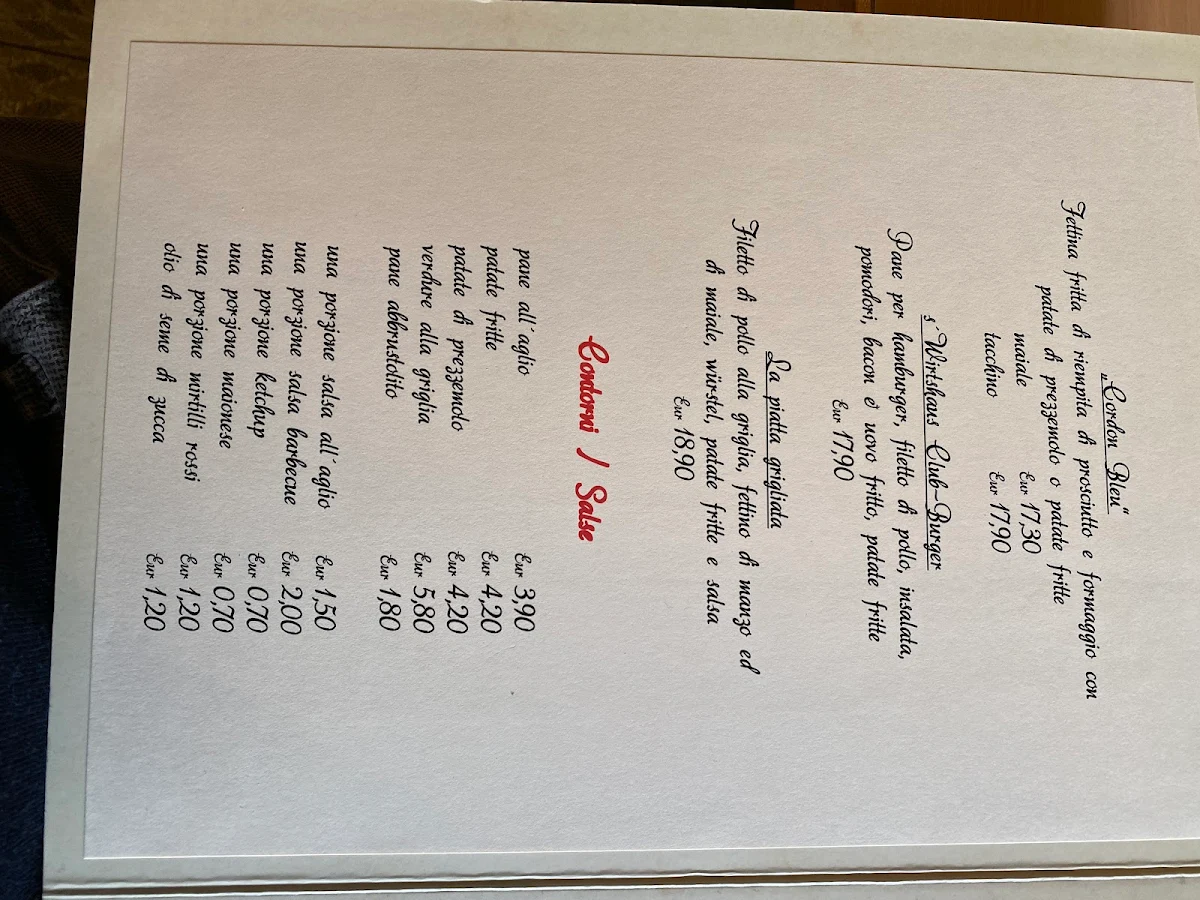 „Cordon Bleu"
Fettina fritta di riempita di prosciutto e formaggio con
patate di prezzemolo o patate fritte
maiale Eur 17,30
tacchino Eur 17,90
s´Wirtshaus Club-Burger
Pane per hamburger, filetto di pollo, insalata,
pomodori, bacon e uovo fritto, patate fritte
Eur 17,90
La piatta grigliata
Filetto di pollo alla griglia, fettino di manzo ed
di maiale, würstel, patate fritte e salsa
Eur 18,90
Contorni / Salse
pane all´aglio Eur 3,90
patate fritte Eur 4,20
patate di prezzemolo Eur 4,20
verdure alla griglia Eur 5,80
pane abbrustolito Eur 1,80
una porzione salsa all´aglio Eur 1,50
una porzione salsa barbecue Eur 2,00
una porzione ketchup Eur 0,70
una porzione maionese Eur 0,70
una porzione mirtilli rossi Eur 1,20
olio di seme di zucca Eur 1,20